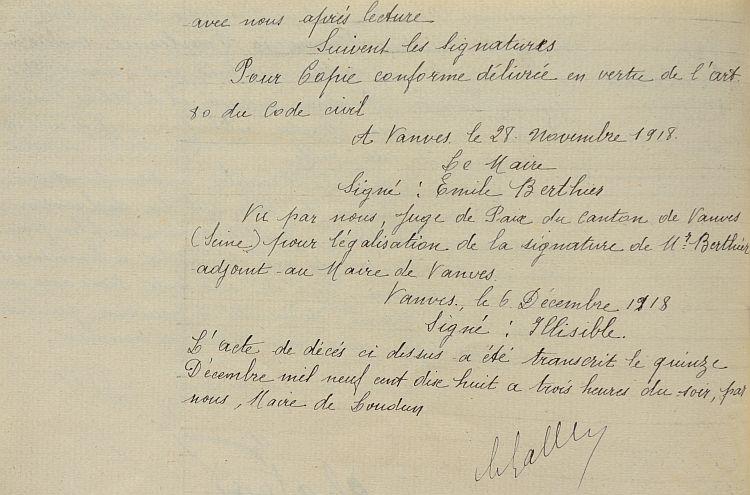 avec nous aprés lecture
Suivent les signatures
Pour Copie conforme délivrée en vertu de l'art.
80 du Code civil
A Vanves, le 28 Novembre 1918.
Le Maire
Signé : Emile Berthier
Vu par nous, Juge de Paix du Canton de Vanves
(Seine) pour légalisation de la signature de Mr. Berthier
adjoint au Maire de Vanves.
Vanves, le 6 Décembre 1918
Signé : Illisible.
L'acte de décés ci dessus a été transcrit le quinze
Décembre mil neuf cent dix huit a trois heures du soir, par
nous, Maire de Loudun